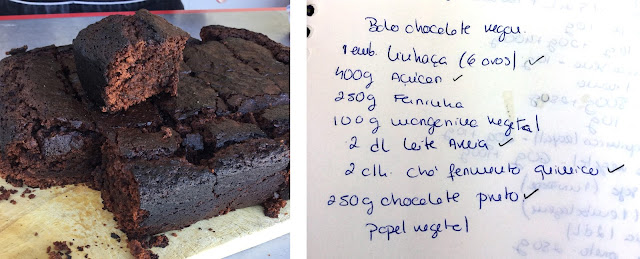 Bolo chocolate vegan
1 emb. Linhaça (6 ovos) ✓
400g Açúcar ✓
250g Farinha
100g margarina vegetal
2 dl Leite Aveia ✓
2 clh. chá fermento químico ✓
250g chocolate preto ✓
papel vegetal